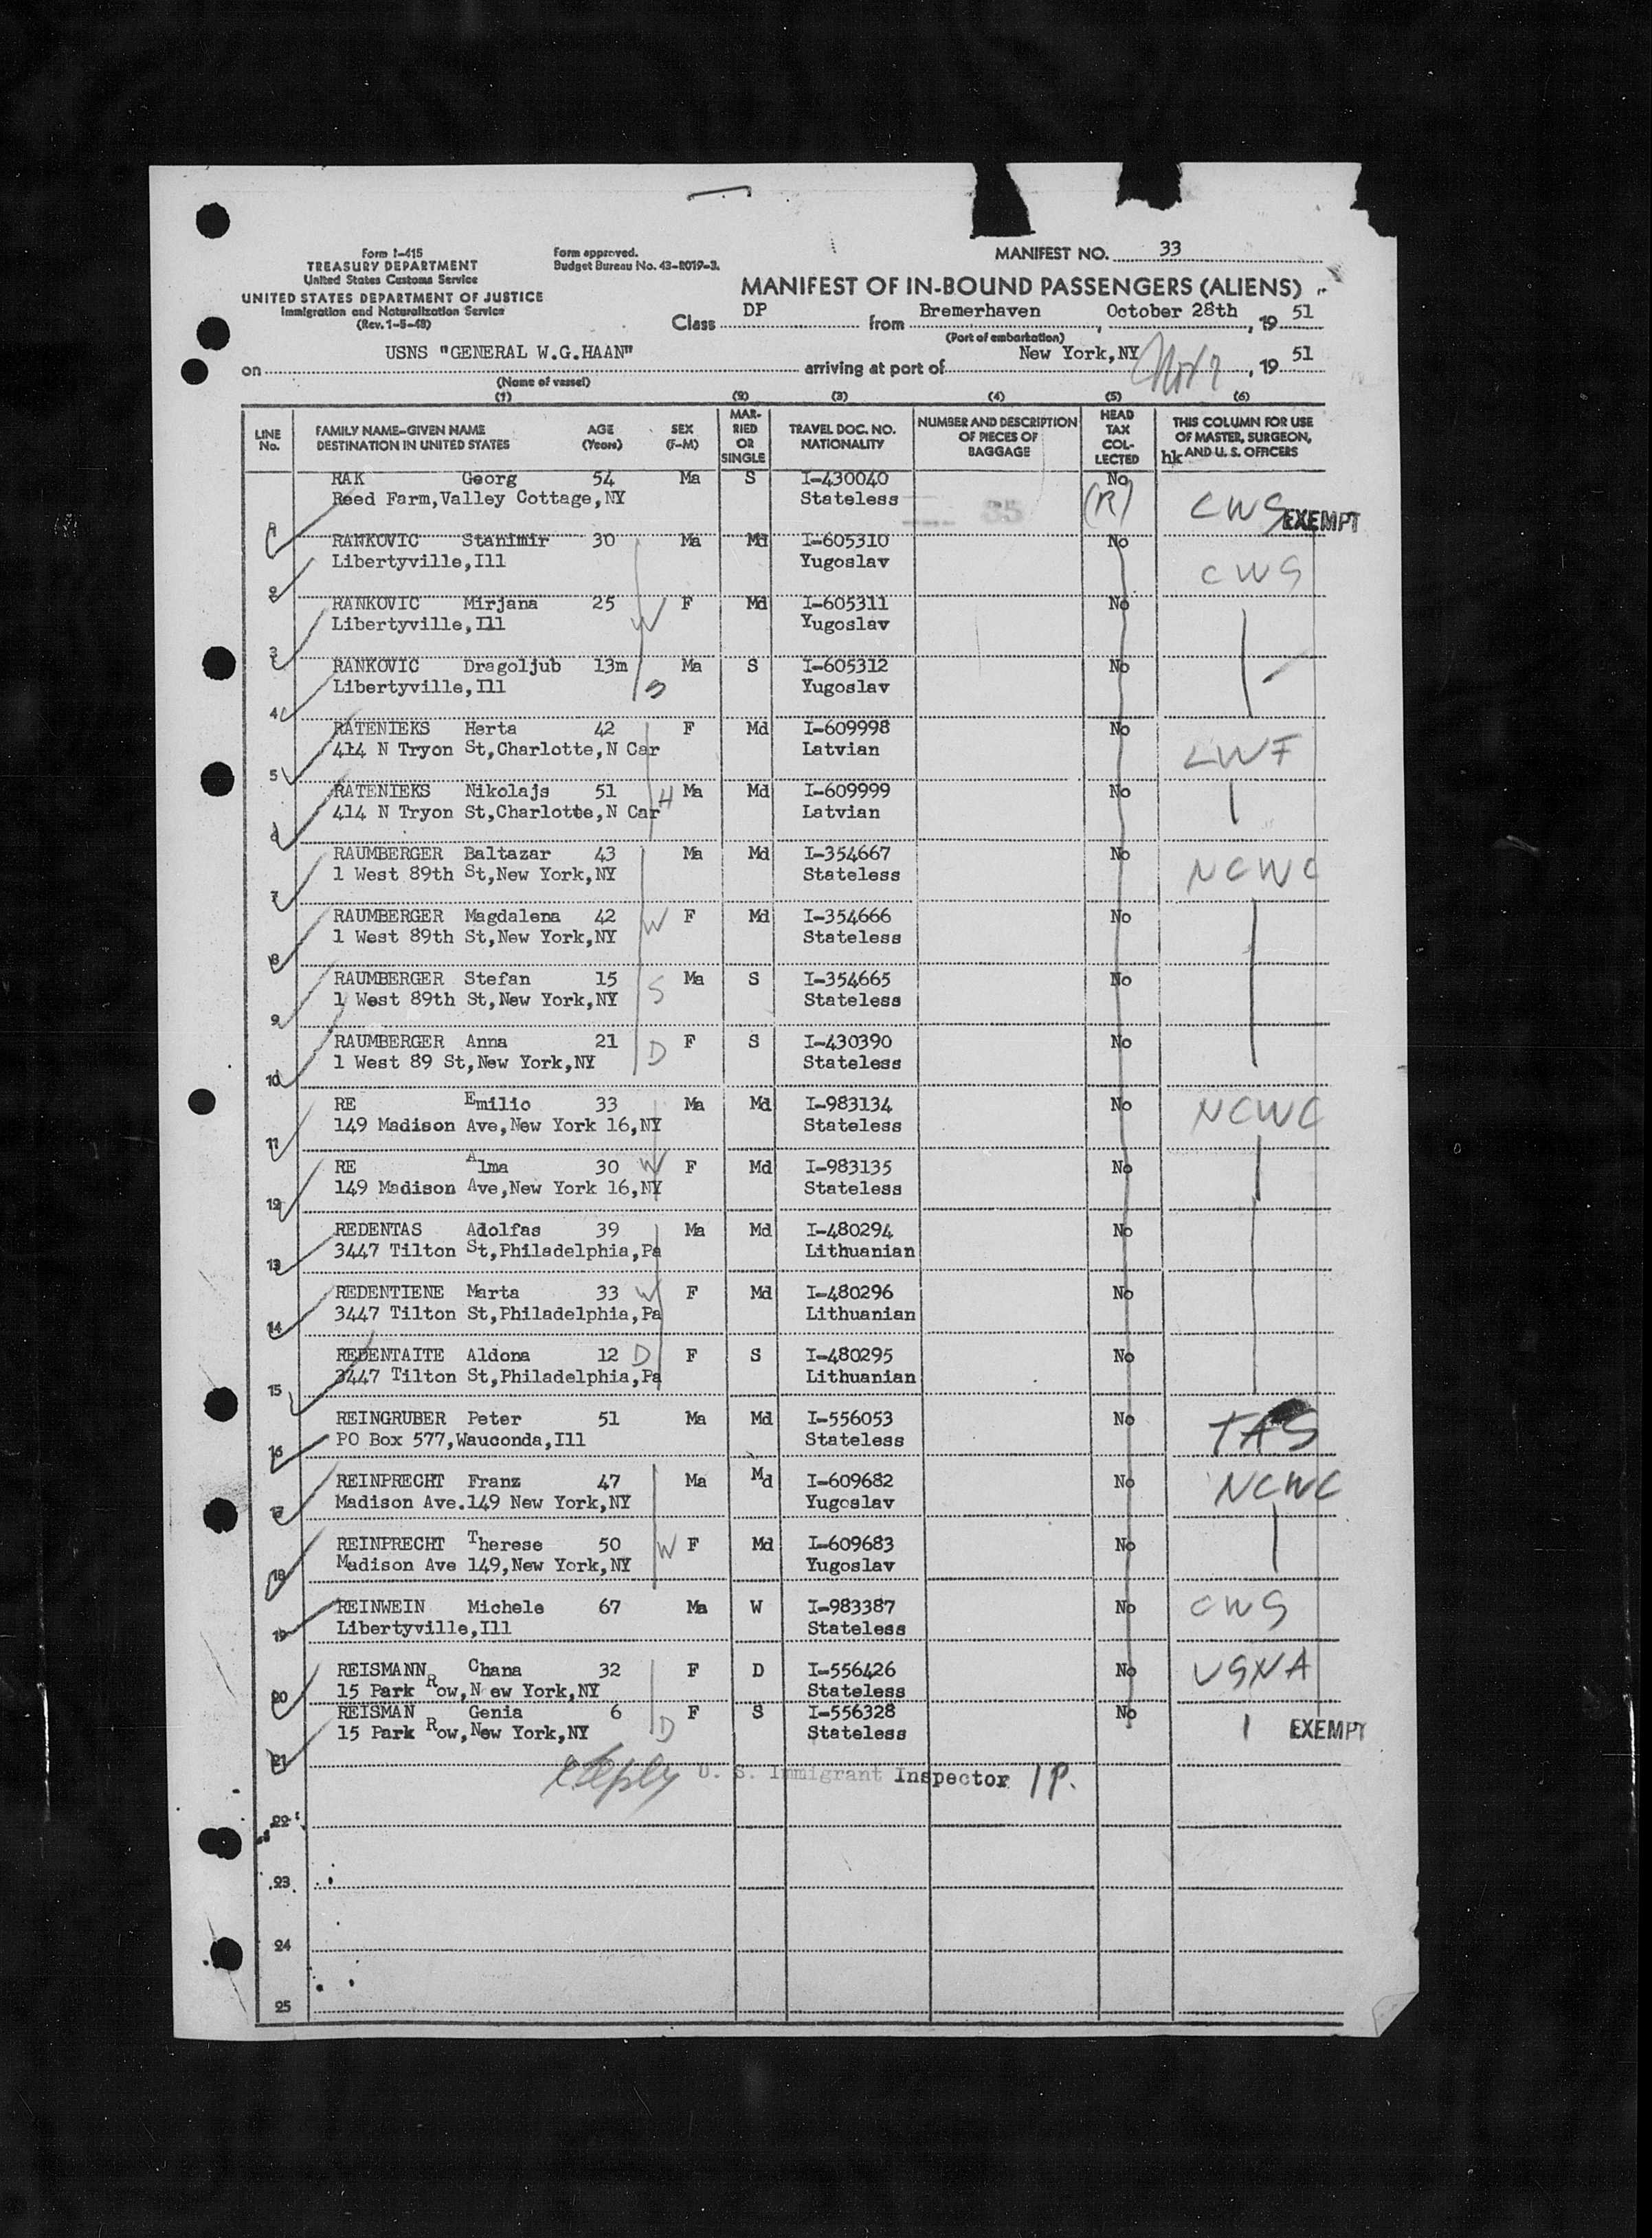 Form I-415
TREASURY DEPARTMENT
United States Customs Service
UNITED STATES DEPARTMENT OF JUSTICE
Immigration and Naturalization Service
(Rev. 1-5-48)
Form approved.
Budget Bureau No. 43-R019-3.
MANIFEST NO. 33
MANIFEST OF IN-BOUND PASSENGERS (ALIENS)
Class DP from Bremerhaven, October 28th, 19 51
(Port of embarkation)
on USNS "GENERAL W.G.HAAN" arriving at port of New York,NY Nov 7, 19 51
(Name of vessel)
(1) (2) (3) (4) (5) (6)
LINE No. FAMILY NAME-GIVEN NAME DESTINATION IN UNITED STATES AGE (Years) SEX (F-M) MAR-RIED OR SINGLE TRAVEL DOC. NO. NATIONALITY NUMBER AND DESCRIPTION OF PIECES OF BAGGAGE HEAD TAX COL-LECTED THIS COLUMN FOR USE OF MASTER, SURGEON, AND U. S. OFFICERS hk
RAK Georg 54 Ma S I-430040 No
Reed Farm,Valley Cottage,NY Stateless 35 (R) CWS EXEMPT
1
RANKOVIC Stanimir 30 Ma Md I-605310 No
Libertyville,Ill Yugoslav CWS
2
RANKOVIC Mirjana 25 W F Md I-605311 No
Libertyville,Ill Yugoslav
3
RANKOVIC Dragoljub 13m Ma S I-605312 No
Libertyville,Ill S Yugoslav
4
RATENIEKS Herta 42 F Md I-609998 No
414 N Tryon St,Charlotte,N Car Latvian LWF
5
RATENIEKS Nikolajs 51 H Ma Md I-609999 No
414 N Tryon St,Charlotte,N Car Latvian
6
RAUMBERGER Baltazar 43 Ma Md I-354667 No
1 West 89th St,New York,NY Stateless NCWC
7
RAUMBERGER Magdalena 42 W F Md I-354666 No
1 West 89th St,New York,NY Stateless
8
RAUMBERGER Stefan 15 S Ma S I-354665 No
1 West 89th St,New York,NY Stateless
9
RAUMBERGER Anna 21 D F S I-430390 No
1 West 89 St,New York,NY Stateless
10
RE Emilio 33 Ma Md I-983134 No NCWC
149 Madison Ave,New York 16,NY Stateless
11
RE Alma 30 W F Md I-983135 No
149 Madison Ave,New York 16,NY Stateless
12
REDENTAS Adolfas 39 Ma Md I-480294 No
3447 Tilton St,Philadelphia,Pa Lithuanian
13
REDENTIENE Marta 33 W F Md I-480296 No
3447 Tilton St,Philadelphia,Pa Lithuanian
14
REDENTAITE Aldona 12 D F S I-480295 No
3447 Tilton St,Philadelphia,Pa Lithuanian
15
REINGRUBER Peter 51 Ma Md I-556053 No TAS
PO Box 577,Wauconda,Ill Stateless
16
REINPRECHT Franz 47 Ma Md I-609682 No NCWC
Madison Ave.149 New York,NY Yugoslav
17
REINPRECHT Therese 50 W F Md I-609683 No
Madison Ave 149,New York,NY Yugoslav
18
REINWEIN Michele 67 Ma W I-983387 No CWS
Libertyville,Ill Stateless
19
REISMANN Chana 32 F D I-556426 No USNA
15 Park Row,N ew York,NY Stateless
20
REISMAN Genia 6 F S I-556328 No
15 Park Row,New York,NY D Stateless EXEMPT
21
U. S. Immigrant Inspector 1P.
22
23
24
25